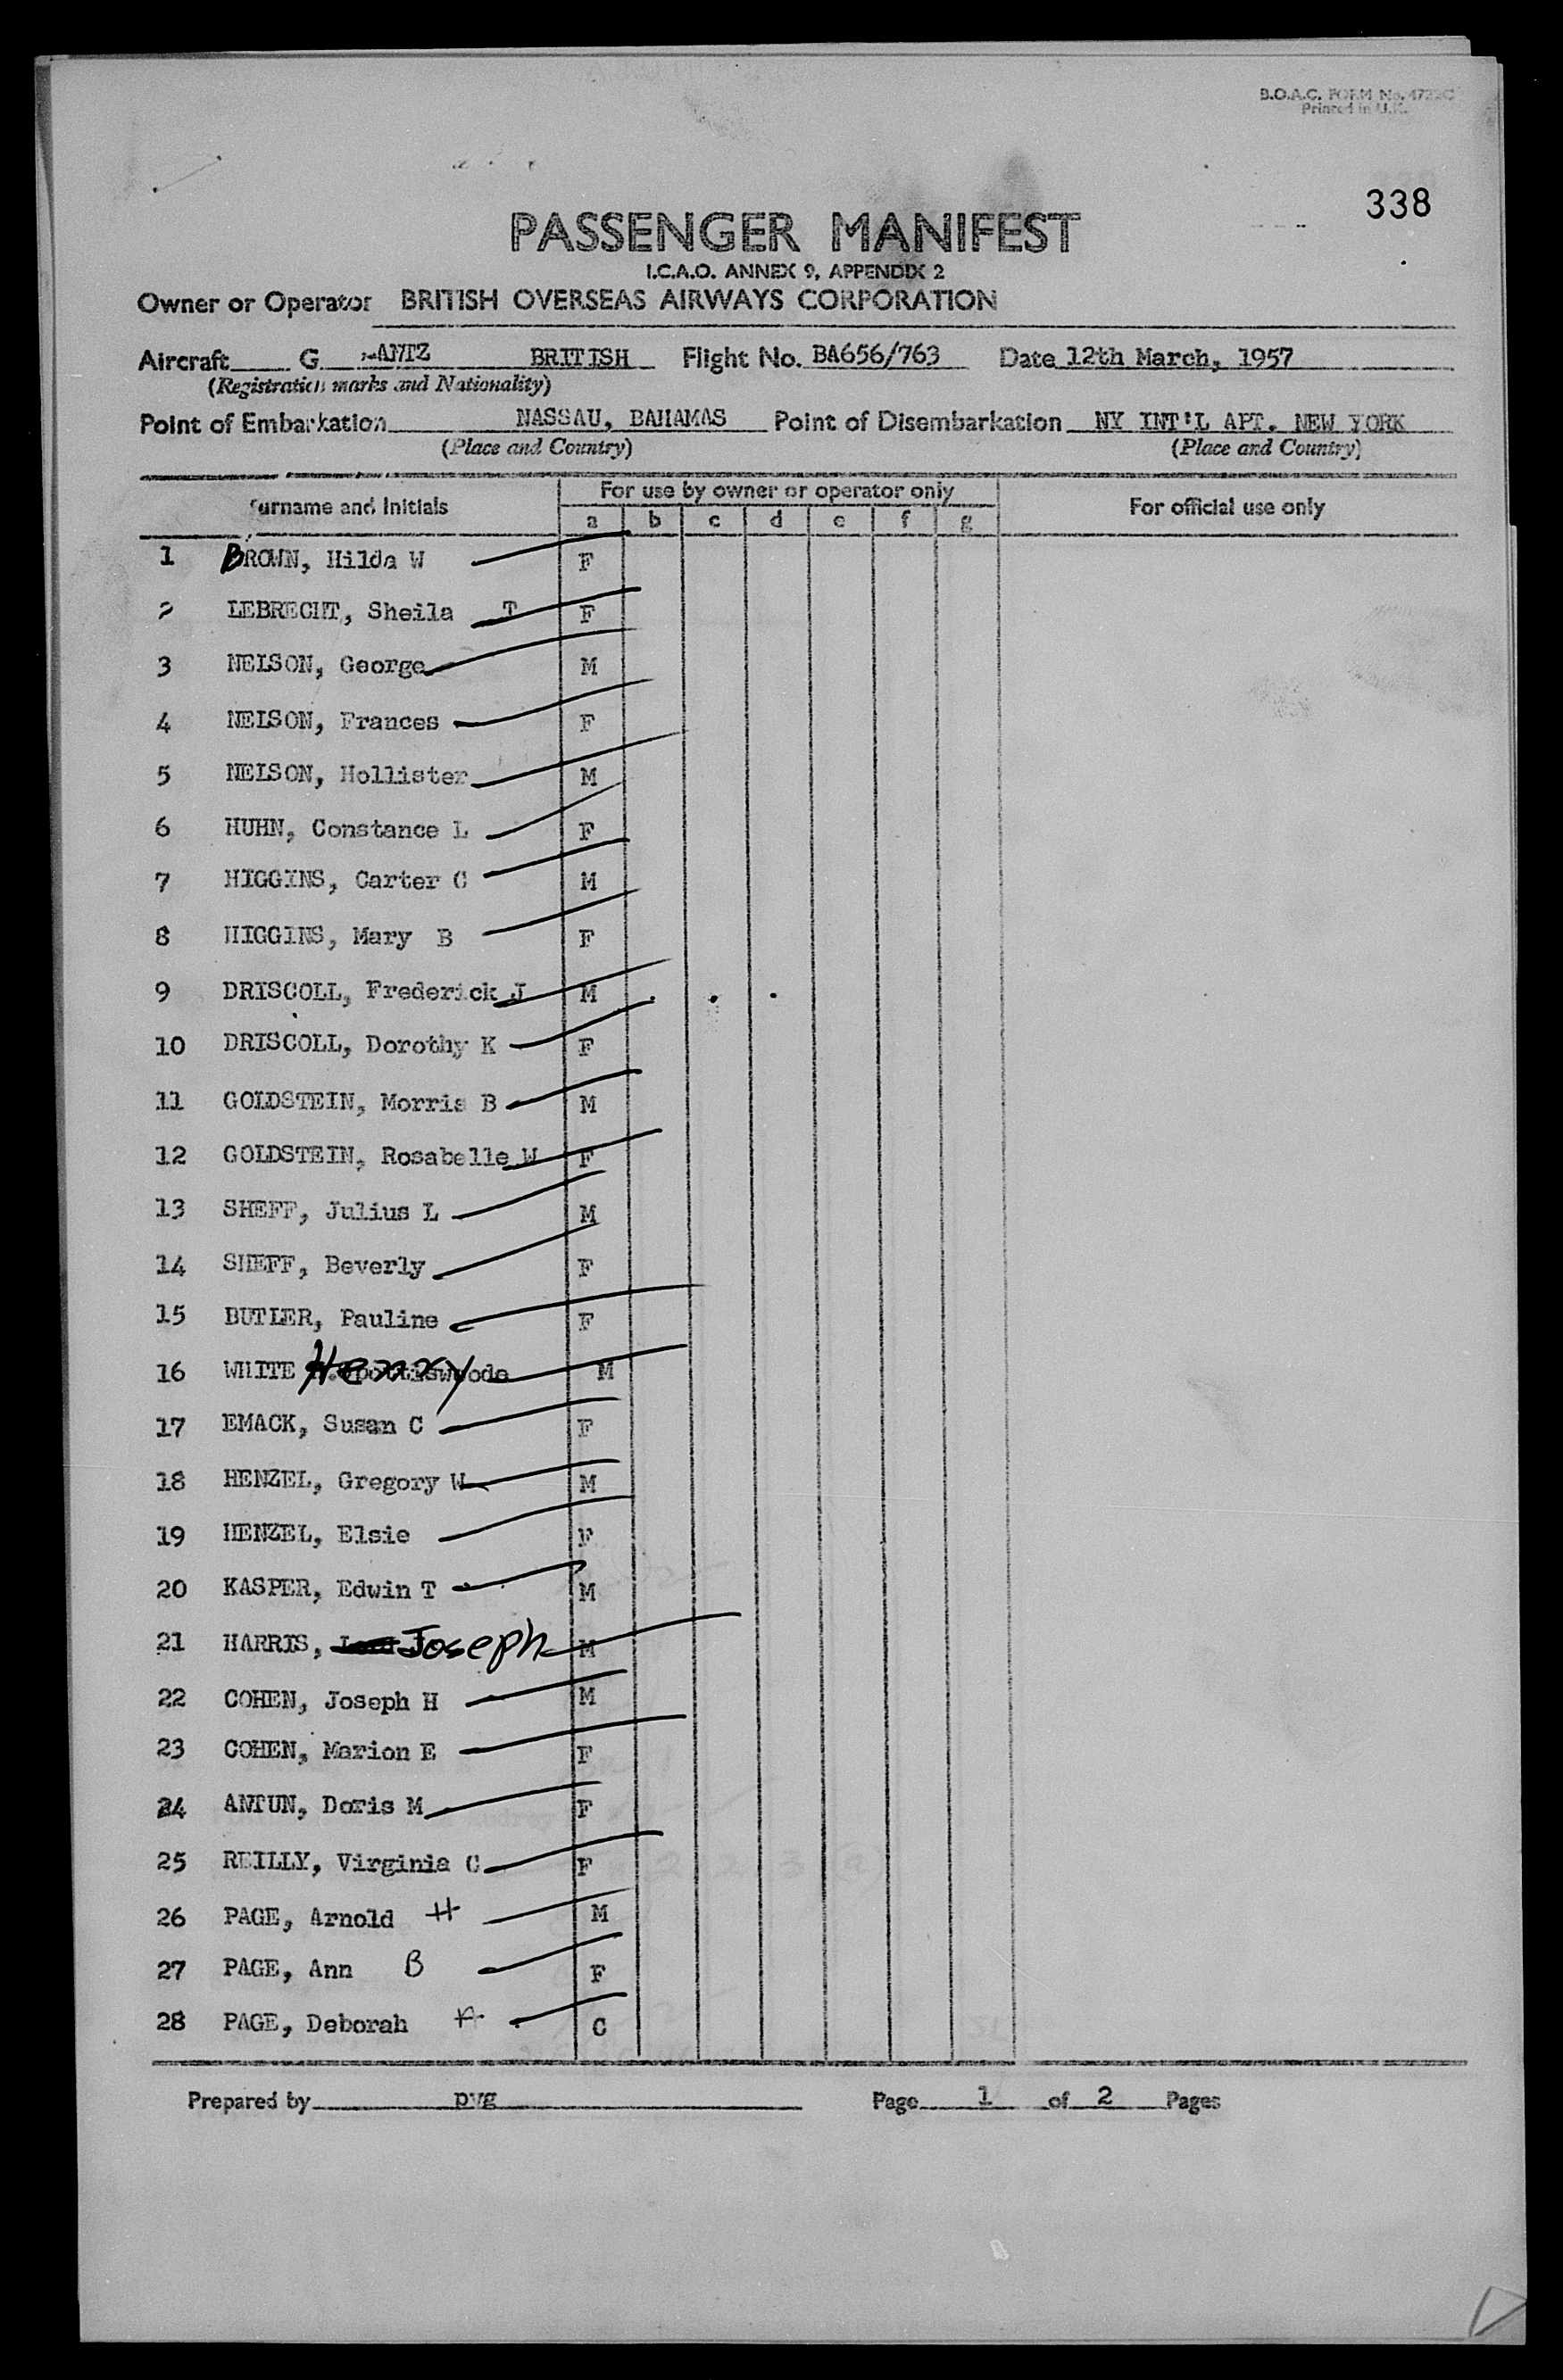 B.O.A.C. FORM No. 4722C
Printed in U.K.
338
PASSENGER MANIFEST
I.C.A.O. ANNEX 9, APPENDIX 2
Owner or Operator BRITISH OVERSEAS AIRWAYS CORPORATION
Aircraft G -ANTZ BRITISH Flight No. BA656/763 Date 12th March, 1957
(Registration marks and Nationality)
Point of Embarkation NASSAU, BAHAMAS Point of Disembarkation NY INT'L APT. NEW YORK
(Place and Country) (Place and Country)
Surname and Initials For use by owner or operator only For official use only
a b c d e f g
1 BROWN, Hilda W F
2 LEBRECHT, Sheila T F
3 NELSON, George M
4 NELSON, Frances F
5 NELSON, Hollister M
6 HUHN, Constance L F
7 HIGGINS, Carter C M
8 HIGGINS, Mary B F
9 DRISCOLL, Frederick J M
10 DRISCOLL, Dorothy K F
11 GOLDSTEIN, Morris B M
12 GOLDSTEIN, Rosabelle W F
13 SHEFF, Julius L M
14 SHEFF, Beverly F
15 BUTLER, Pauline F
16 WHITE Henry M
17 EMACK, Susan C F
18 HENZEL, Gregory W M
19 HENZEL, Elsie F
20 KASPER, Edwin T M
21 HARRIS, Joseph M
22 COHEN, Joseph H M
23 COHEN, Marion E F
24 ANTUN, Doris M F
25 REILLY, Virginia C F
26 PAGE, Arnold H M
27 PAGE, Ann B F
28 PAGE, Deborah C
Prepared by pvg Page 1 of 2 Pages